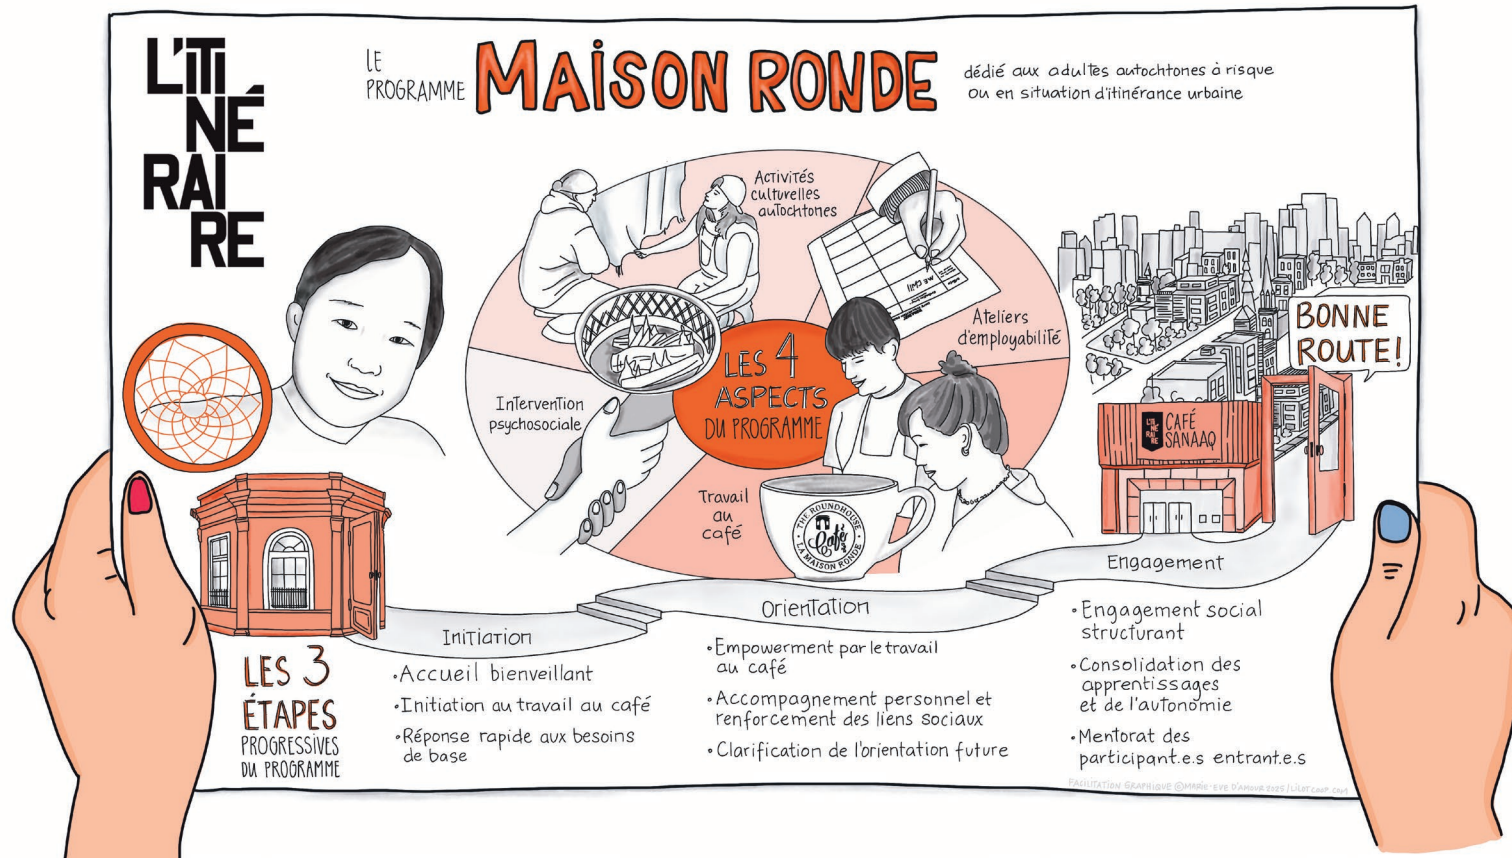 L'ITI
NÉ
RAI
RE
LE
PROGRAMME
MAISON RONDE
dédié aux adultes autochtones à risque
ou en situation d'itinérance urbaine
Activités
culturelles
autochtones
Ateliers
d'employabilité
Intervention
psychosociale
LES 4
ASPECTS
DU PROGRAMME
Travail
au
café
THE ROUNDHOUSE
Café
LA MAISON RONDE
BONNE
ROUTE!
L'ITI
NÉ
RAI
RE
CAFÉ
SANAAQ
Initiation
Orientation
Engagement
LES 3
ÉTAPES
PROGRESSIVES
DU PROGRAMME
•Accueil bienveillant
•Initiation au travail au café
•Réponse rapide aux besoins
de base
•Empowerment par le travail
au café
•Accompagnement personnel et
renforcement des liens sociaux
•Clarification de l'orientation future
•Engagement social
structurant
•Consolidation des
apprentissages
et de l'autonomie
•Mentorat des
participant.e.s entrant.e.s
FACILITATION GRAPHIQUE ©MARIE-EVE D'AMOUR 2025